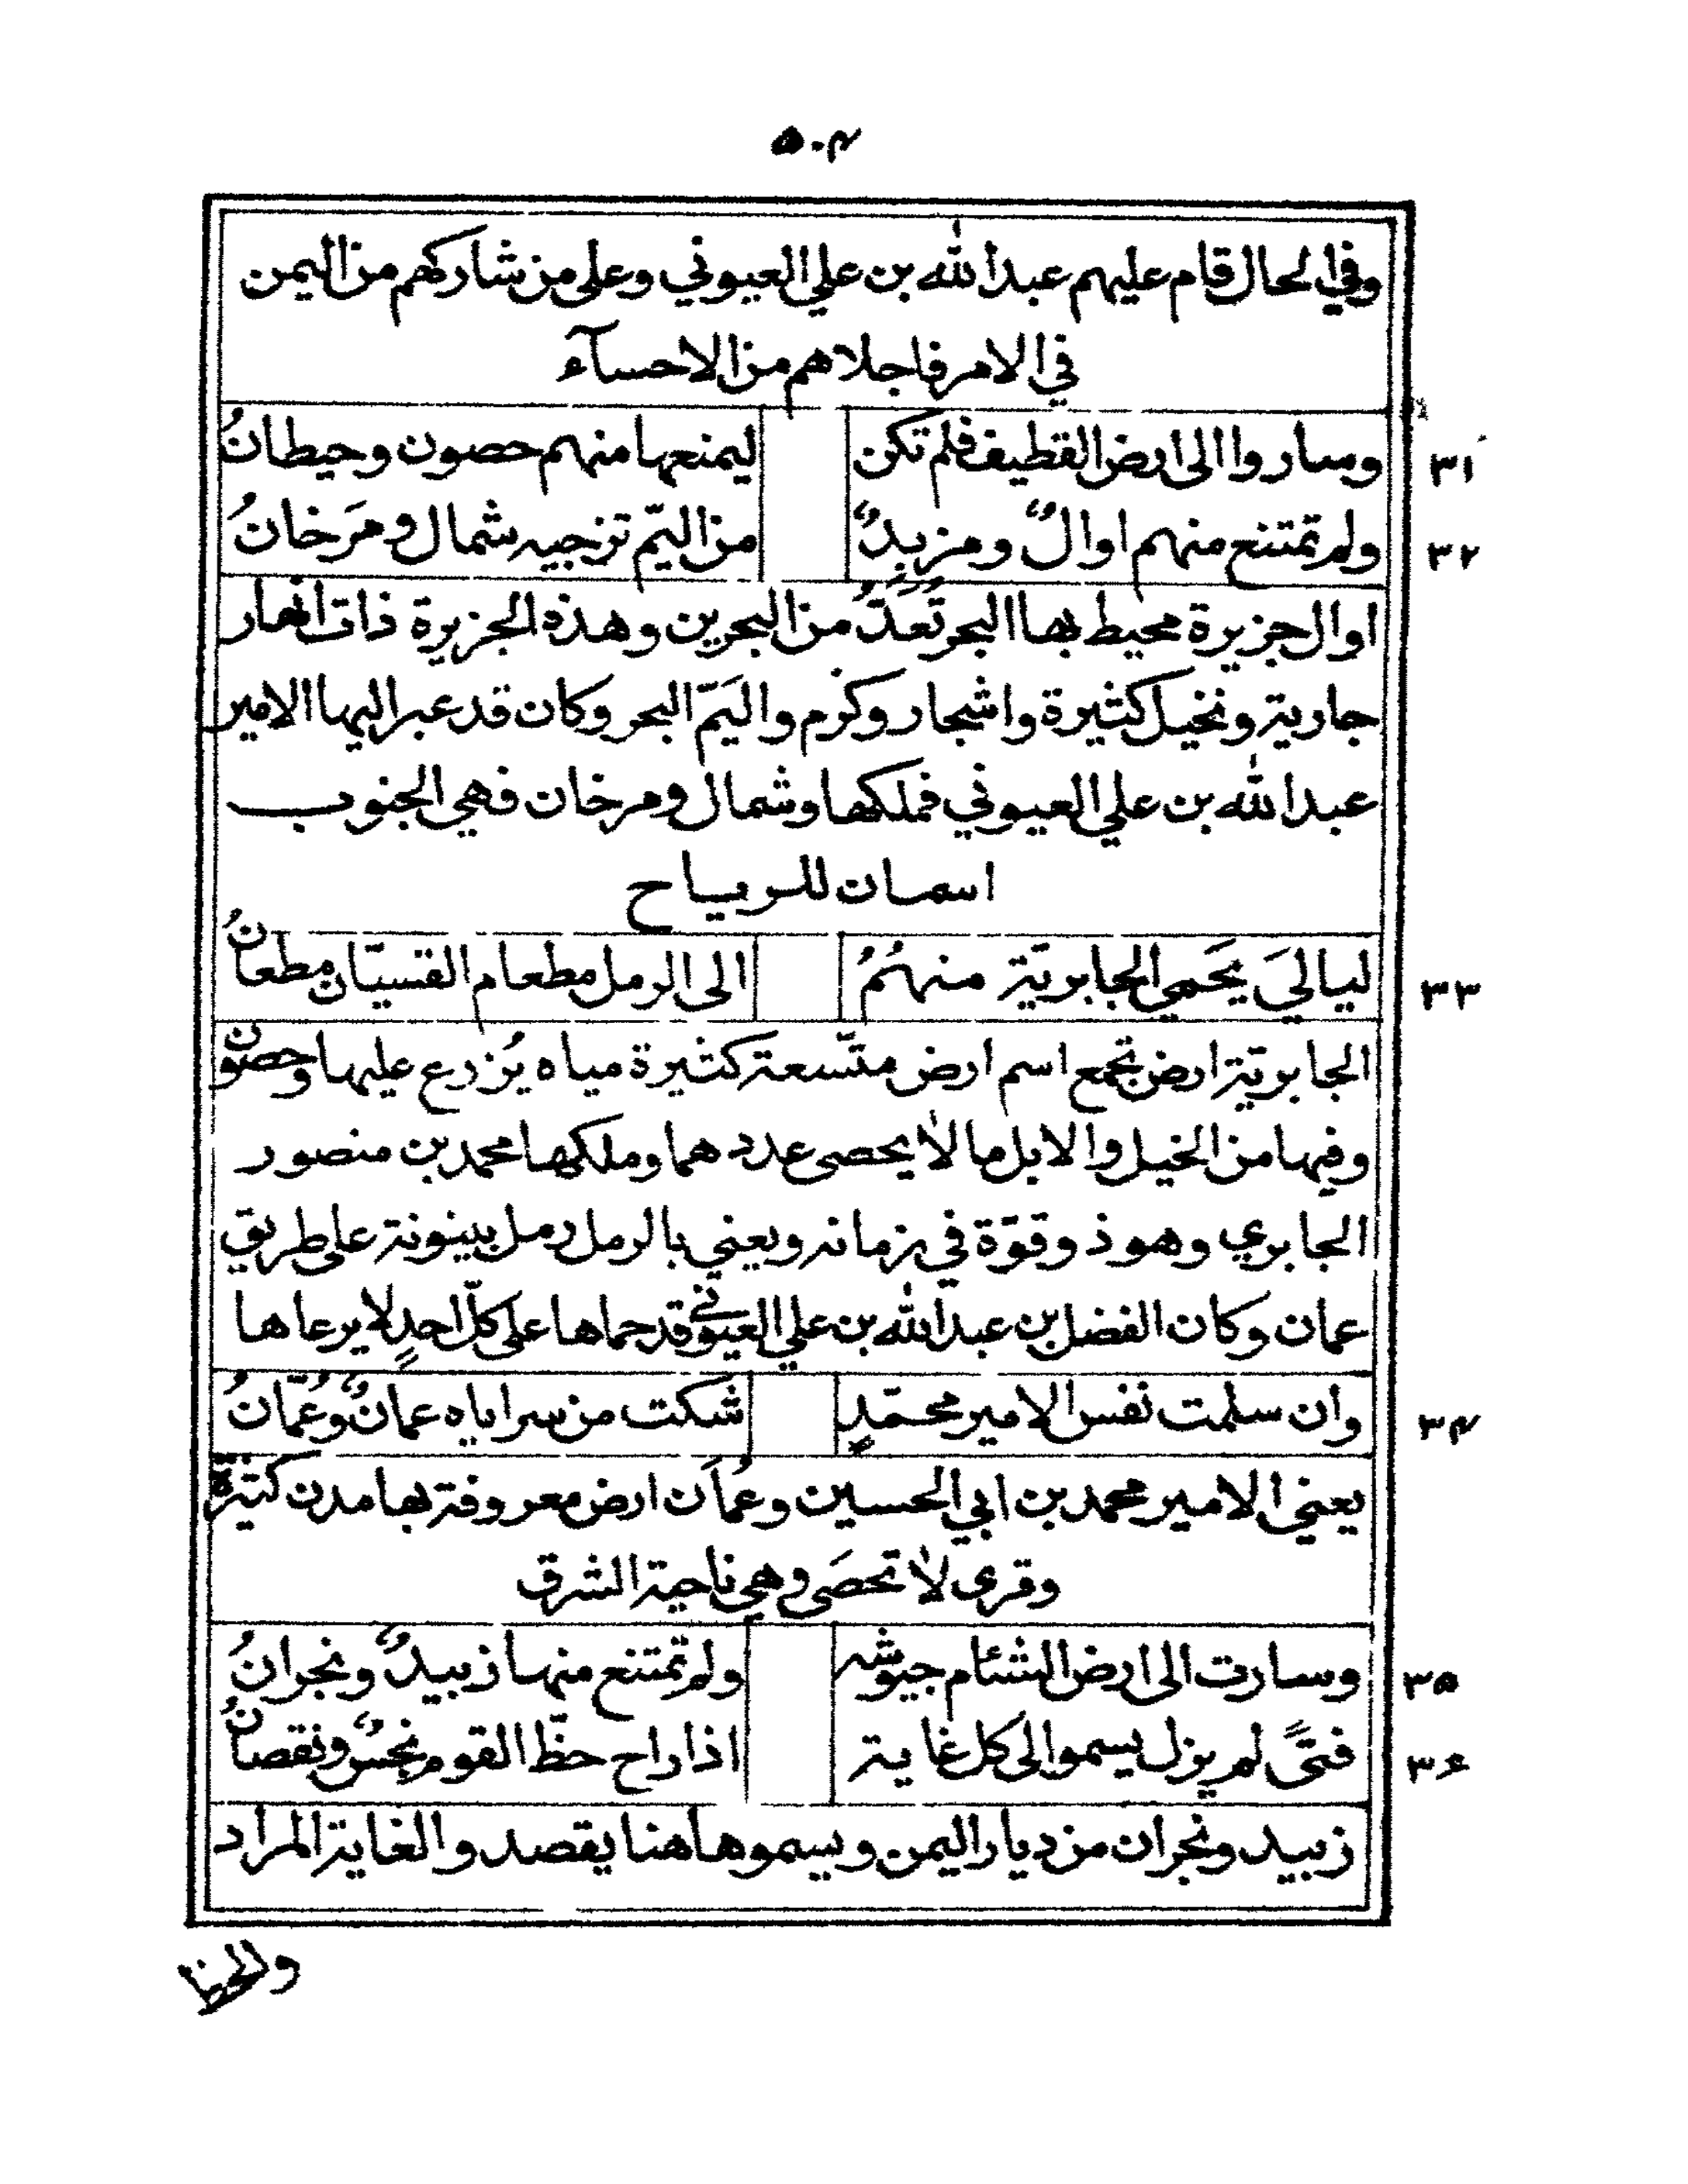 ٥٠٤
وفي الحال قام عليهم عبدالله بن علي العيوني وعلى من شاركهم من اليمن
في الامر فاجلاهم من الاحسآء
٣١ وساروا الى ارض القطيف فلم تكن ليمنعها منهم حصون وحيطانُ
٣٢ ولم تمتنع منهم اوالٌ ومزبدٌ من اليمّ تزجيه شمال ومَرخانُ
اوال جزيرة محيط بها البحر تُعَدُّ من البحرين وهذه الجزيرة ذات انهار
جارية ونخيل كثيرة واشجار وكرم واليَمّ البحر وكان قد عبر اليها الامير
عبدالله بن علي العيوني فملكها وشمال ومرخان فهي الجنوب
اسمان للرياح
٣٣ لياليَ يَحَمي الجابريّة منهمُ الى الرمل مطعام القسيّان مطعانُ
الجابريّة ارض تجمع اسم ارض متّسعة كثيرة مياه يُزرع عليها وحصون
وفيها من الخيل والابل ما لا يحصى عددهما وملكها محمد بن منصور
الجابري وهو ذو قوّة في زمانه ويعني بالرمل رمل بينونة على طريق
عمان وكان الفضل بن عبدالله بن علي العيوني قد حماها على كلّ احدٍ لا يرعاها
٣٤ وان سلمت نفس الامير محمّدٍ شكت من سراياه عمانٌ وعُمّانُ
يعني الامير محمد بن ابي الحسين وعُمَان ارض معروفة بها مدن كثيرة
وقرى لا تحصَى وهي ناحية الشرق
٣٥ وسارت الى ارض الشئام جيوشه ولم تمتنع منها زبيدٌ ونجرانُ
٣٦ فتىً لم يزل يسموا الى كل غاية اذا راح حظّ القوم نجسٌ ونقصانُ
زبيد ونجران من ديار اليمن ويسمو هاهنا يقصد والغاية المراد